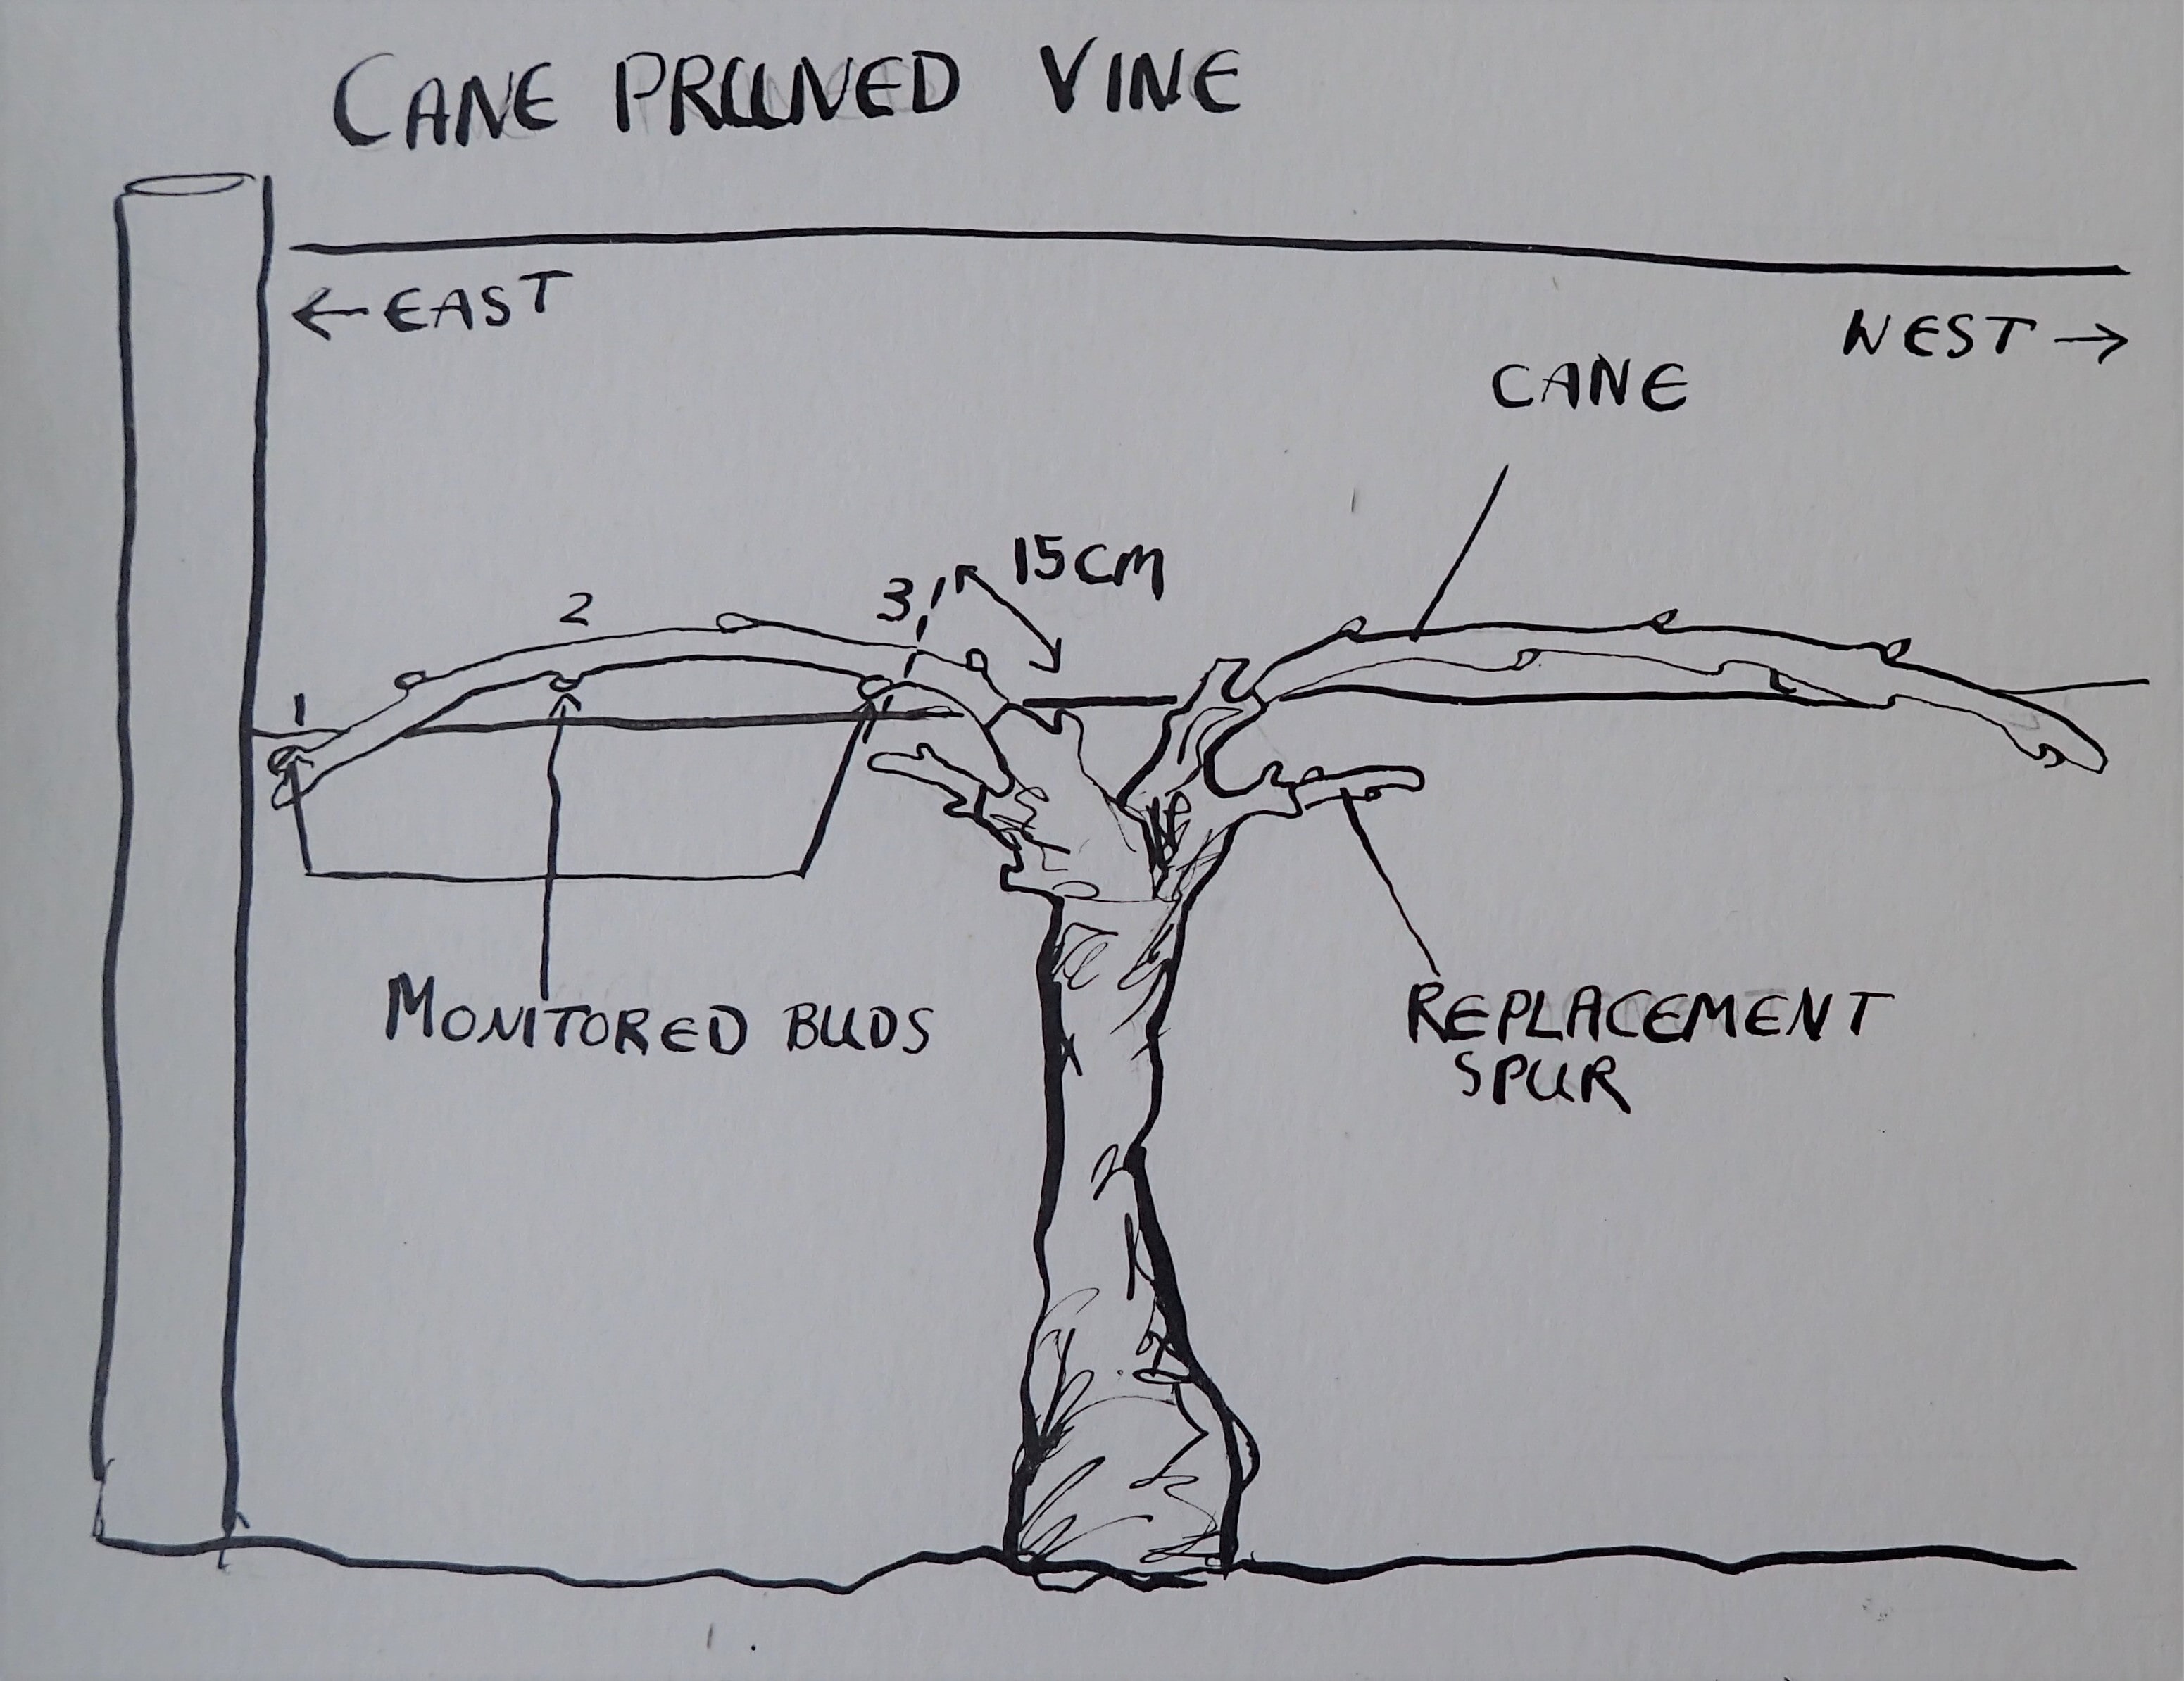 CANE PRUNED VINE
← EAST
WEST →
CANE
15CM
1
2
3
MONITORED BUDS
REPLACEMENT
SPUR